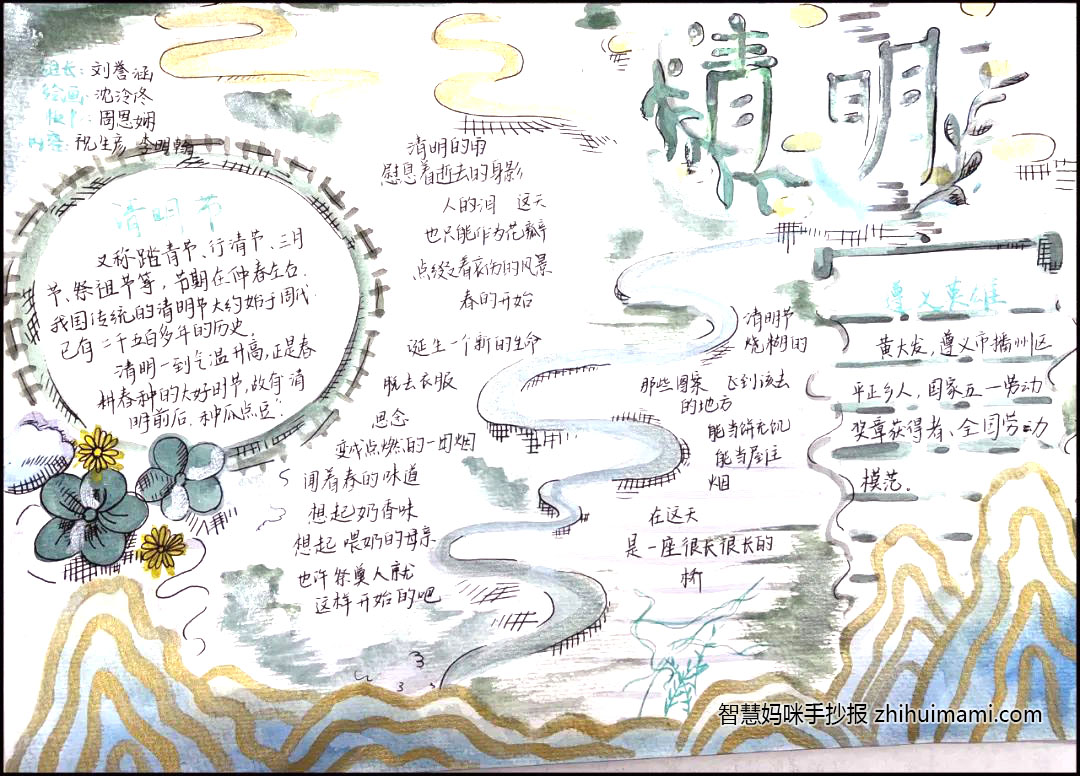 清明
组长：刘誉涵
绘画：沈泠佟
周思娴
内容：祝生彦 李明翰
清明节
又称踏青节、行清节、三月
节、祭祖节等，节期在仲春左右.
我国传统的清明节大约始于周代.
已有二千五百多年的历史。
清明一到气温升高,正是春
耕春种的大好时节，故有“清
明前后，种瓜点豆”。
清明的雨
慰息着逝去的身影
人的泪 这天
也只能作为花瓣
点缀着哀伤的风景
春的开始
诞生一个新的生命
脱去衣服
思念
变成点燃的一切烟
闻着春的味道
想起奶香味
想起 喂奶的母亲
也许祭奠人就
这样开始的吧
清明节
烧糊的
那些图案 飞到该去
的地方
能当饼充饥
能当屋住
烟
在这天
是一座很长很长的
桥
遵义英雄
黄大发，遵义市播州区
平正乡人，国家五一劳动
奖章获得者、全国劳动
模范。
智慧妈咪手抄报 zhihuimami.com